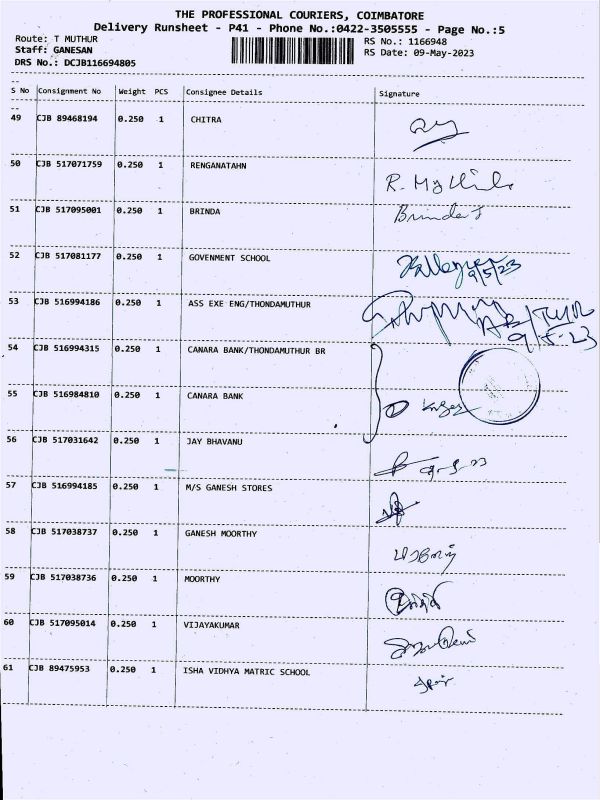 THE PROFESSIONAL COURIERS, COIMBATORE
Delivery Runsheet - P41 - Phone No.:0422-3505555 - Page No.:5
Route: T MUTHUR RS No.: 1166948
Staff: GANESAN RS Date: 09-May-2023
DRS No.: DCJB116694805
S No Consignment No Weight PCS Consignee Details Signature
49 CJB 89468194 0.250 1 CHITRA
50 CJB 517071759 0.250 1 RENGANATAHN
51 CJB 517095001 0.250 1 BRINDA Brinda
52 CJB 517081177 0.250 1 GOVENMENT SCHOOL 9/5/23
53 CJB 516994186 0.250 1 ASS EXE ENG/THONDAMUTHUR
54 CJB 516994315 0.250 1 CANARA BANK/THONDAMUTHUR BR
55 CJB 516984810 0.250 1 CANARA BANK
56 CJB 517031642 0.250 1 JAY BHAVANU
57 CJB 516994185 0.250 1 M/S GANESH STORES
58 CJB 517038737 0.250 1 GANESH MOORTHY
59 CJB 517038736 0.250 1 MOORTHY
60 CJB 517095014 0.250 1 VIJAYAKUMAR
61 CJB 89475953 0.250 1 ISHA VIDHYA MATRIC SCHOOL